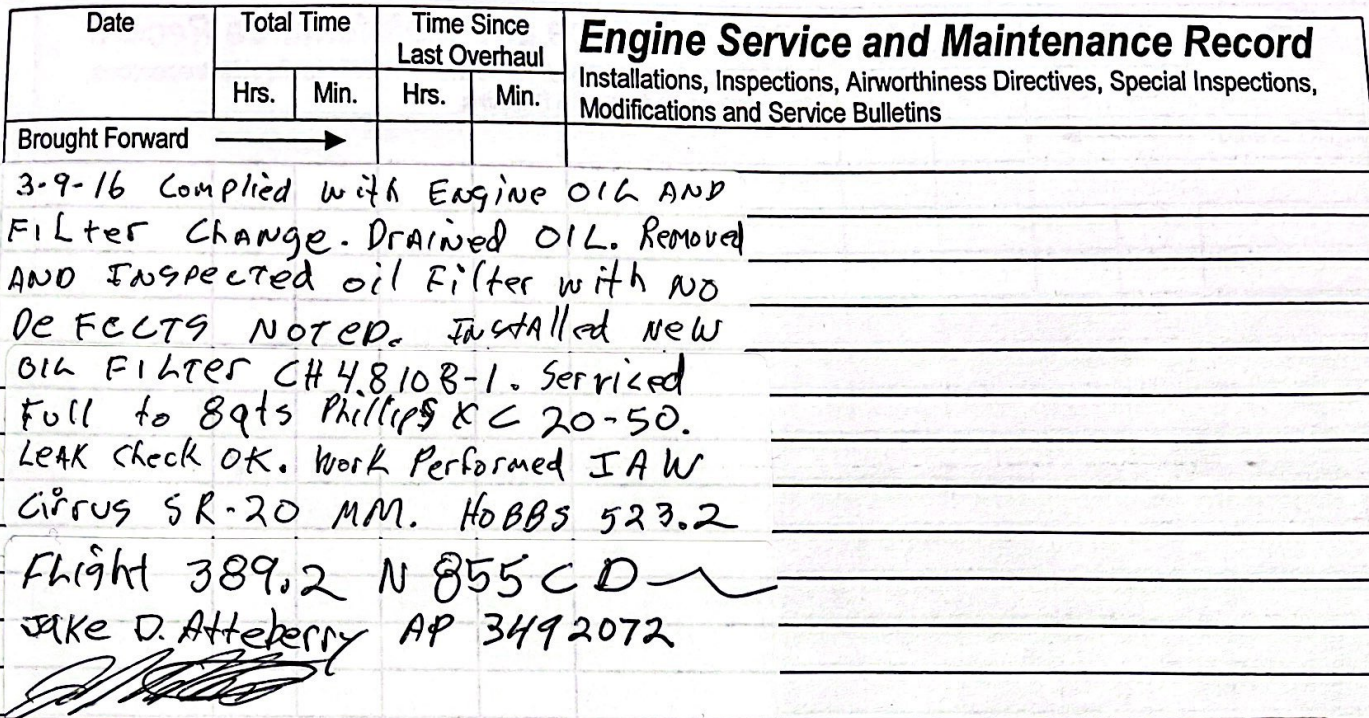 Date
Total Time
Time Since
Last Overhaul
Engine Service and Maintenance Record
Installations, Inspections, Airworthiness Directives, Special Inspections,
Modifications and Service Bulletins
Hrs. Min. Hrs. Min.
Brought Forward
3-9-16 Complied with Engine OIL AND
Filter Change. Drained OIL. Removed
AND Inspected oil Filter with NO
DeFects Noted. Installed New
OIL Filter CH48108-1. Serviced
Full to 8qts Phillips XC 20-50.
Leak check OK. Work Performed IAW
Cirrus SR-20 MM. HOBBS 523.2
Flight 389.2 N 855 CD
Jake D. Atteberry AP 3492072